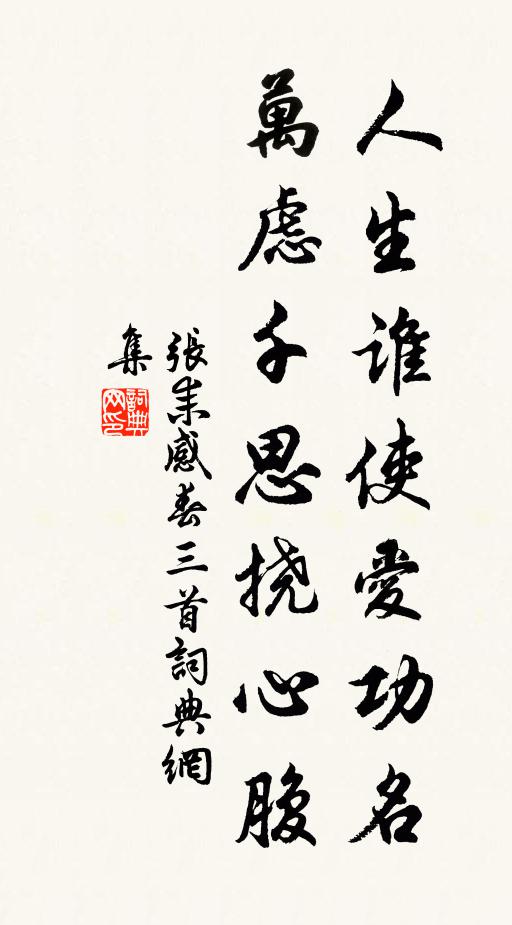 人生誰使愛功名
萬慮千思挠心腹
張耒感春三首詞典網
集
詞典
网印